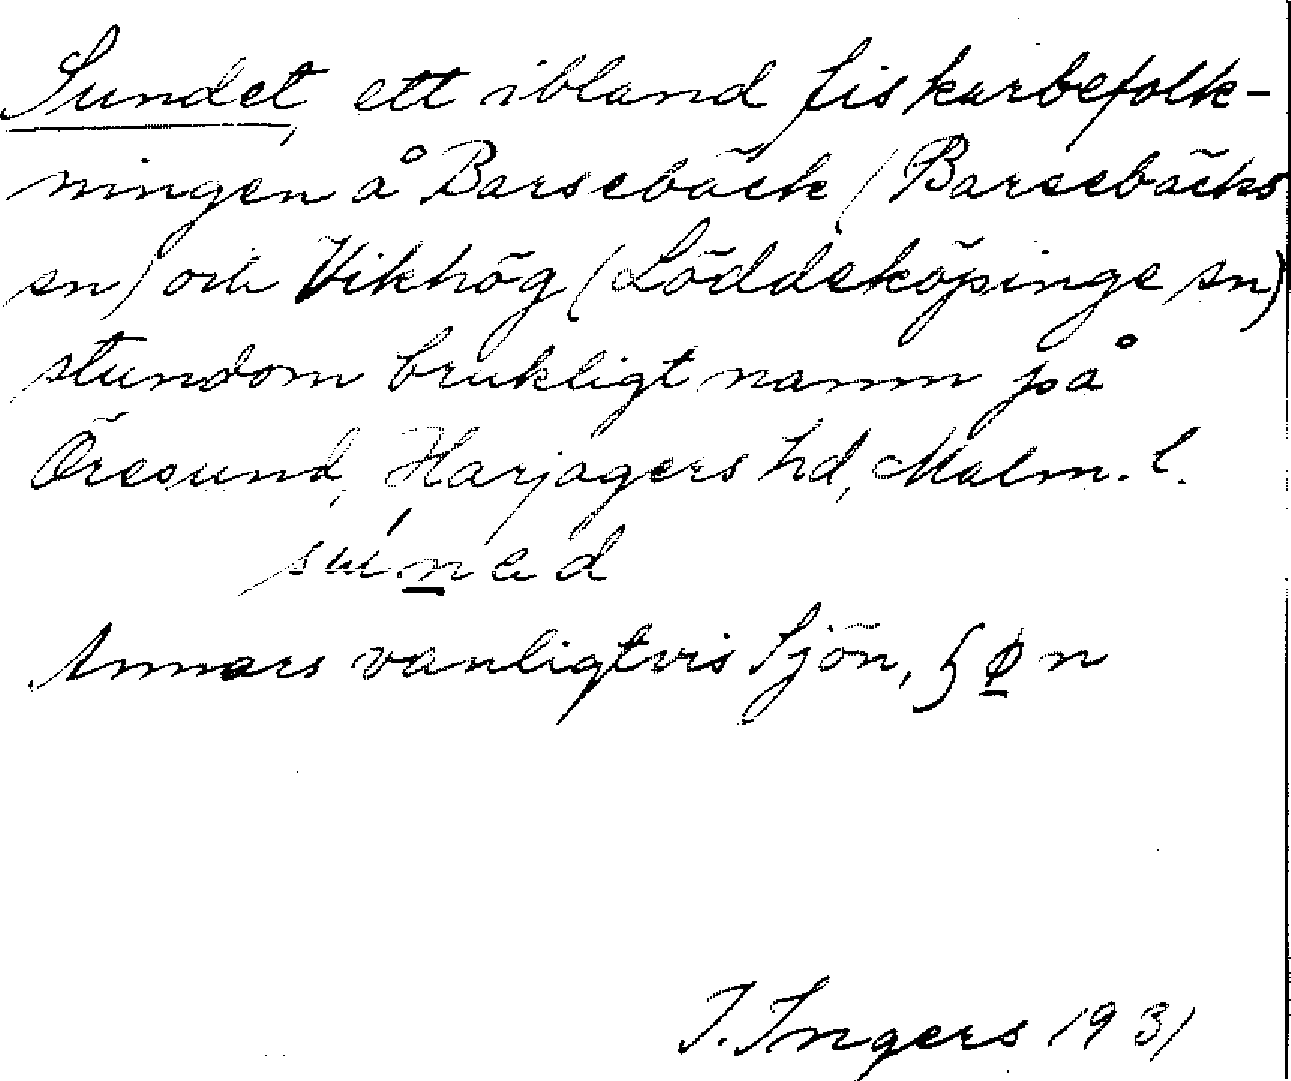 Sundet, ett ibland fiskarbefolk-
ningen å Barsebäck (Barsebäcks
sn) och Vikhög (Löddeköpinge sn)
stundom brukligt namn på
Öresund, Harjagers hd, Malm. l.
Annars vanligtvis Sjön,
I. Ingers 1931